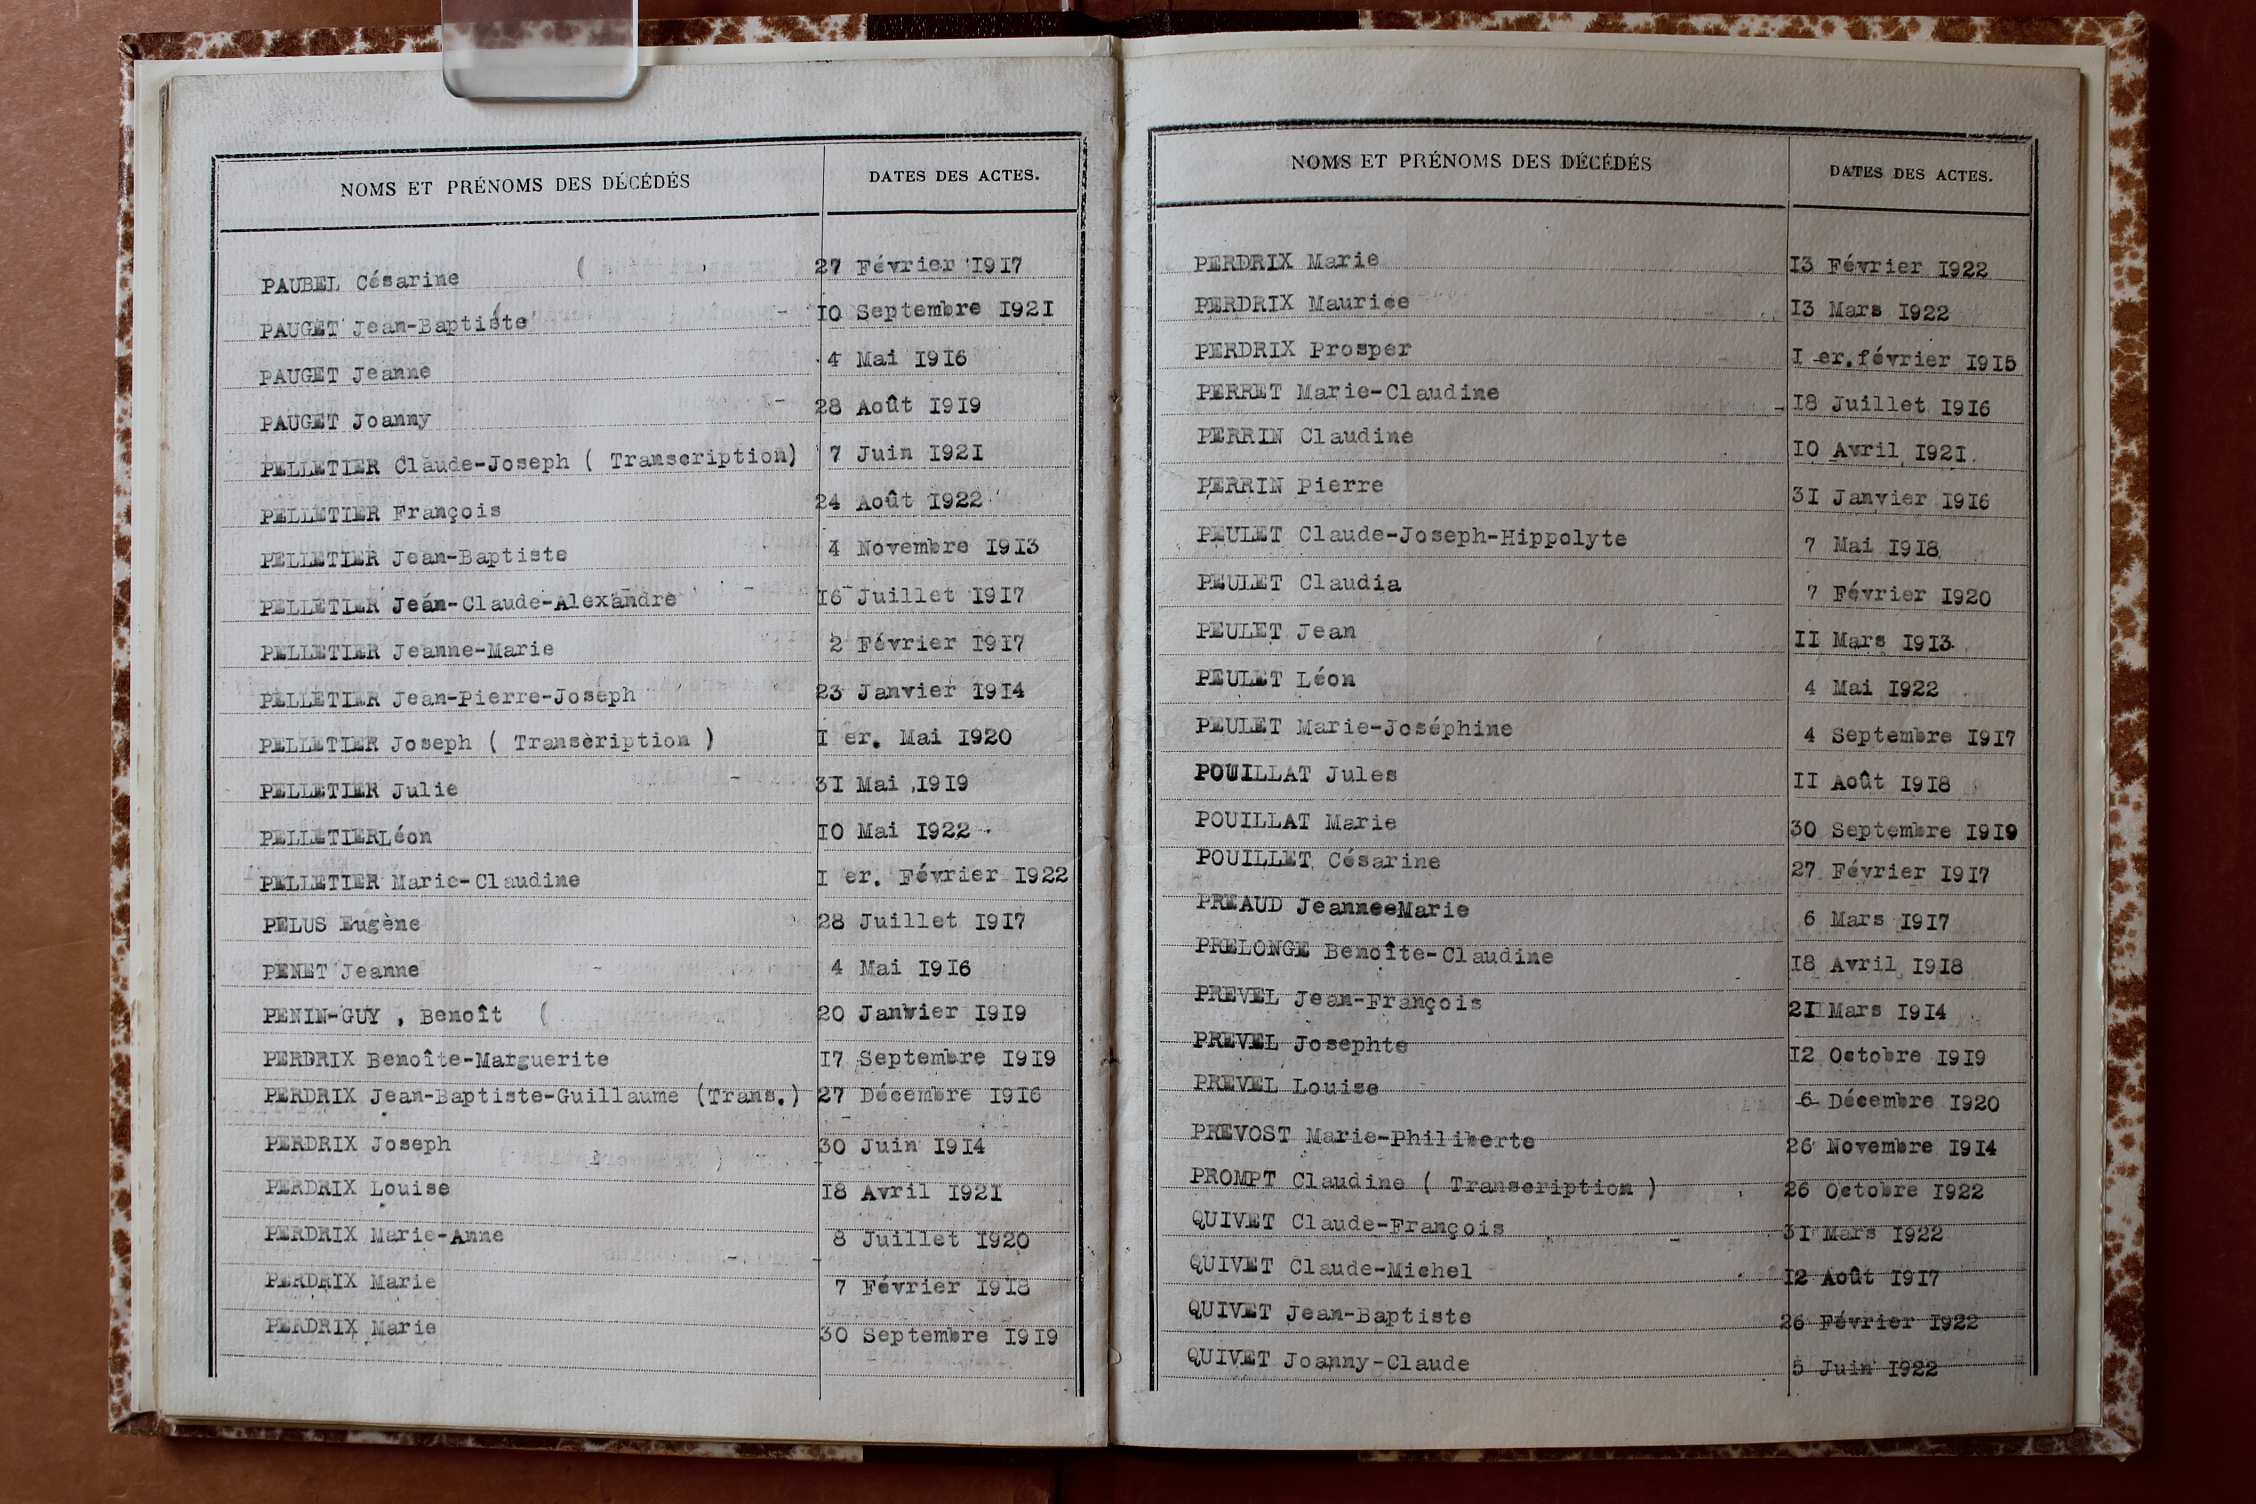 NOMS ET PRÉNOMS DES DÉCÉDÉS DATES DES ACTES.
PAUBEL Césarine ( 27 Février 1917
PAUGET Jean-Baptiste 10 Septembre 1921
PAUGET Jeanne 4 Mai 1916
PAUGET Joanny 28 Août 1919
PELLETIER Claude-Joseph ( Transcription) 7 Juin 1921
PELLETIER François 24 Août 1922
PELLETIER Jean-Baptiste 4 Novembre 1913
PELLETIER Jean-Claude-Alexandre 16 Juillet 1917
PELLETIER Jeanne-Marie 2 Février 1917
PELLETIER Jean-Pierre-Joseph 23 Janvier 1914
PELLETIER Joseph ( Transcription ) I er. Mai 1920
PELLETIER Julie 31 Mai 1919
PELLETIERLéon 10 Mai 1922
PELLETIER Marie-Claudine I er. Février 1922
PELUS Eugène 28 Juillet 1917
PENET Jeanne 4 Mai 1916
PENIN-GUY , Benoît ( 20 Janvier 1919
PERDRIX Benoîte-Marguerite 17 Septembre 1919
PERDRIX Jean-Baptiste-Guillaume (Trans.) 27 Décembre 1916
PERDRIX Joseph 30 Juin 1914
PERDRIX Louise 18 Avril 1921
PERDRIX Marie-Anne 8 Juillet 1920
PERDRIX Marie 7 Février 1918
PERDRIX Marie 30 Septembre 1919
NOMS ET PRÉNOMS DES DÉCÉDÉS DATES DES ACTES.
PERDRIX Marie 13 Février 1922
PERDRIX Maurice 13 Mars 1922
PERDRIX Prosper I er.février 1915
PERRET Marie-Claudine 18 Juillet 1916
PERRIN Claudine 10 Avril 1921
PERRIN Pierre 31 Janvier 1916
PEULET Claude-Joseph-Hippolyte 7 Mai 1918
PEULET Claudia 7 Février 1920
PEULET Jean 11 Mars 1913
PEULET Léon 4 Mai 1922
PEULET Marie-Joséphine 4 Septembre 1917
POUILLAT Jules 11 Août 1918
POUILLAT Marie 30 Septembre 1919
POUILLET Césarine 27 Février 1917
PREAUD JeanneeMarie 6 Mars 1917
PRELONGE Benoîte-Claudine 18 Avril 1918
PREVEL Jean-François 21 Mars 1914
PREVEL Josephte 12 Octobre 1919
PREVEL Louise 6 Décembre 1920
PREVOST Marie-Philiberte 26 Novembre 1914
PROMPT Claudine ( Transcription ) 26 Octobre 1922
QUIVET Claude-François 31 Mars 1922
QUIVET Claude-Michel 12 Août 1917
QUIVET Jean-Baptiste 26 Février 1922
QUIVET Joanny-Claude 5 Juin 1922